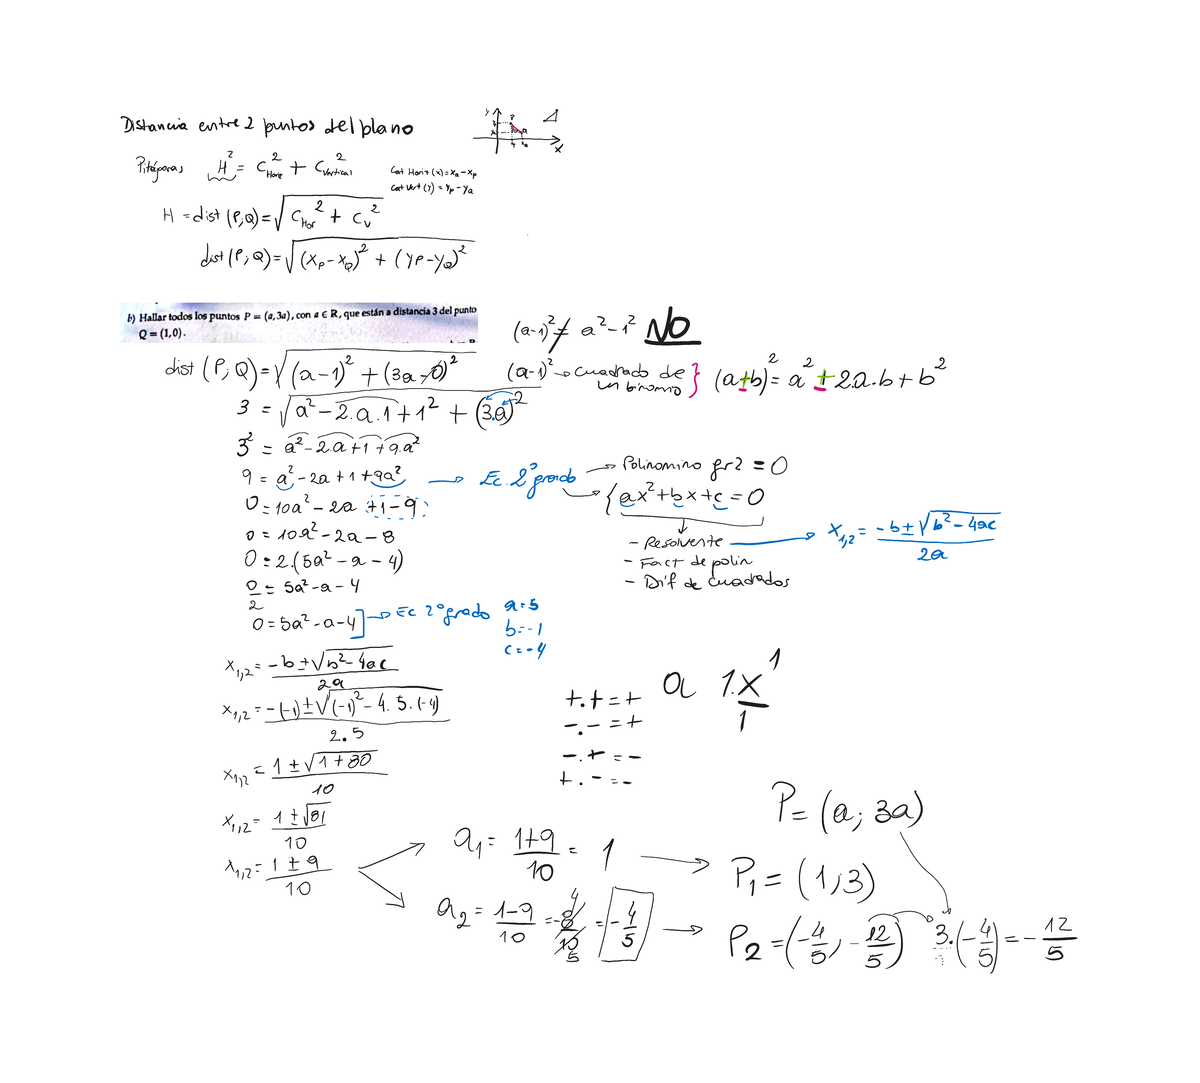 Distancia entre 2 puntos del plano
y P Q x
Pitágoras H² = C²Horiz + C²Vertical
Cat Horiz (x) = xQ - xP
Cat Vert (y) = yP - yQ
H = dist (P,Q) = √(CHor² + Cv²)
dist (P, Q) = √((xP - xQ)² + (yP - yQ)²)
b) Hallar todos los puntos P = (a, 3a), con a ∈ R, que están a distancia 3 del punto
Q = (1, 0).
(a-1)² ≠ a² - 1² NO
dist (P, Q) = √((a-1)² + (3a-0)²)
(a-1)² → Cuadrado de un binomio } (a±b)² = a² ± 2.a.b + b²
3 = √(a² - 2.a.1 + 1² + (3.a)²)
3² = a² - 2a + 1 + 9.a²
9 = a² - 2a + 1 + 9a² → Ec. 2° grado
→ Polinomino gr 2 = 0
→ { ax² + bx + c = 0
0 = 10a² - 2a + 1 - 9
0 = 10a² - 2a - 8
- Resolvente → x1,2 = (-b ± √(b² - 4ac)) / 2a
- Fact de polin
- Dif de Cuadrados
0 = 2.(5a² - a - 4)
0/2 = 5a² - a - 4
0 = 5a² - a - 4 ] → Ec 2° grado
a = 5
b = -1
c = -4
x1,2 = (-b ± √(b² - 4ac)) / 2a
x1,2 = (-(-1) ± √((-1)² - 4.5.(-4))) / 2.5
+.+ = +
-.- = +
-.+ = -
+.- = -
a 1.x¹ / 1
x1,2 = (1 ± √(1 + 80)) / 10
x1,2 = (1 ± √81) / 10
x1,2 = (1 ± 9) / 10
P = (a; 3a)
a1 = (1+9)/10 = 1 → P1 = (1, 3)
a2 = (1-9)/10 = -8/10 4/5 = -4/5 → P2 = (-4/5, -12/5)
3.(-4/5) = -12/5